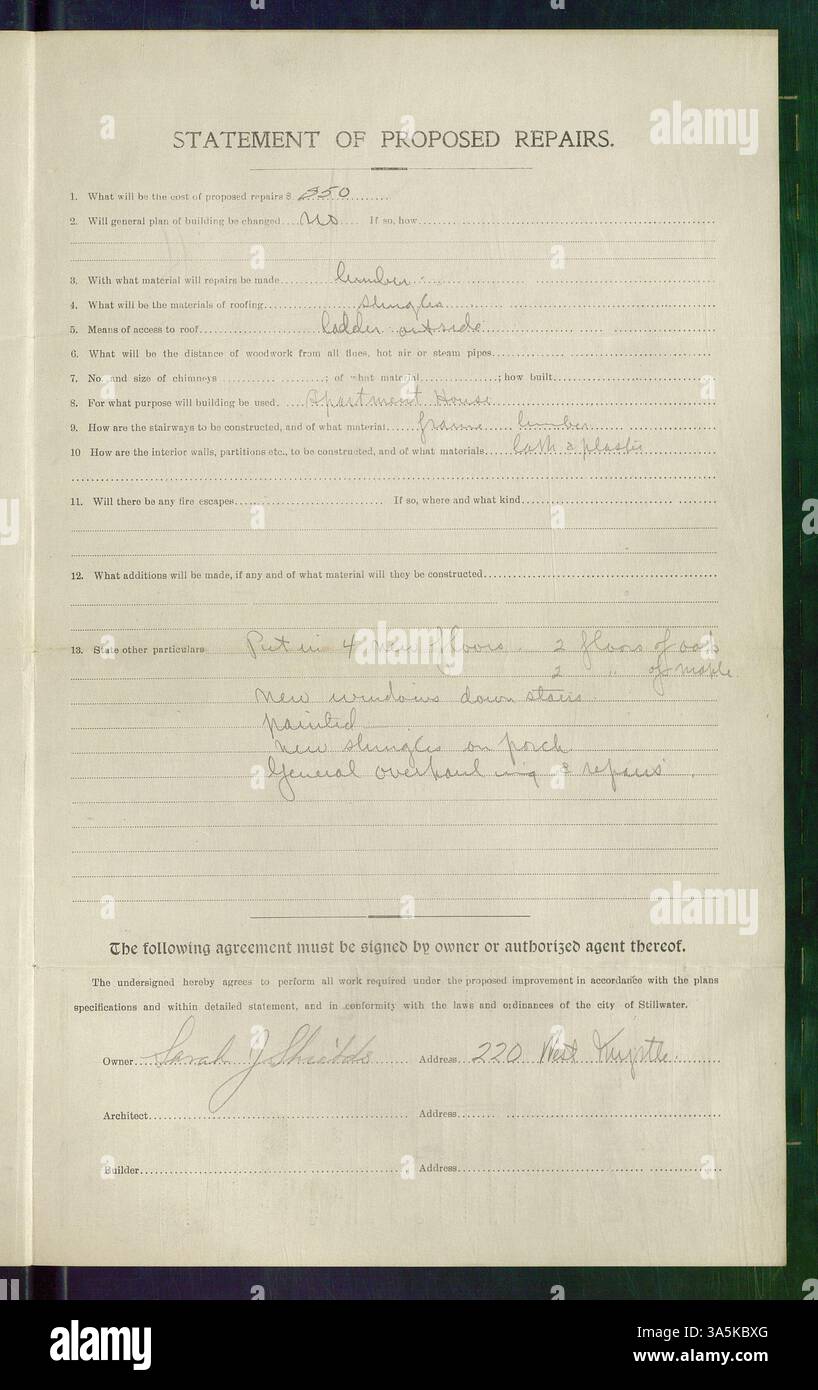 STATEMENT OF PROPOSED REPAIRS.
1. What will be the cost of proposed repairs $ 350
2. Will general plan of building be changed....no.... If so, how
3. With what material will repairs be made lumber
4. What will be the materials of roofing shingles
5. Means of access to roof ladder outside
6. What will be the distance of woodwork from all flues, hot air or steam pipes
7. No. and size of chimneys ; of what material ; how built
8. For what purpose will building be used Apartment House
9. How are the stairways to be constructed, and of what material frame lumber
10 How are the interior walls, partitions etc., to be constructed, and of what materials lath & plaster
11. Will there be any fire escapes If so, where and what kind
12. What additions will be made, if any and of what material will they be constructed
13. State other particulars Put in 4 new floors. 2 floors of oak
2 " of maple
New windows down stairs
painted
new shingles on porch
General overhauling & repairs.
The following agreement must be signed by owner or authorized agent thereof.
The undersigned hereby agrees to perform all work required under the proposed improvement in accordance with the plans
specifications and within detailed statement, and in conformity with the laws and ordinances of the city of Stillwater.
Owner Sarah J Address 220 West Myrtle
Architect Address
Builder Address
alamy
Image ID: 3A5KBXG
www.alamy.com